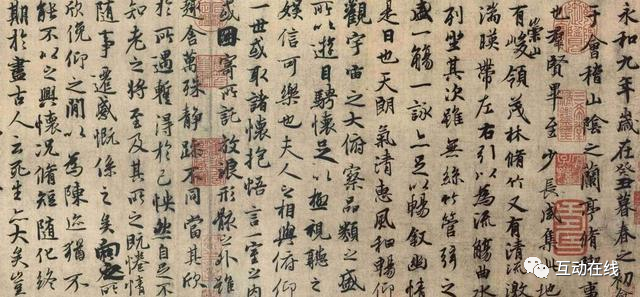 永和九年歲在癸丑暮春之初會
于會稽山陰之蘭亭脩禊事
也群賢畢至少長咸集此地
有崇山峻領茂林脩竹又有清流激
湍暎帶左右引以為流觴曲水
列坐其次雖無絲竹管弦之
盛一觴一詠亦足以暢敘幽情
是日也天朗氣清惠風和暢仰
觀宇宙之大俯察品類之盛
所以遊目騁懷足以極視聽之
娛信可樂也夫人之相與俯仰
一世或取諸懷抱悟言一室之內
或因寄所託放浪形骸之外雖
趣舍萬殊靜躁不同當其欣
於所遇暫得於己怏然自足不
知老之將至及其所之既惓情
隨事遷感慨係之矣向之所
欣俛仰之閒以為陳迹猶不
能不以之興懷況脩短隨化終
期於盡古人云死生亦大矣豈
互动在线